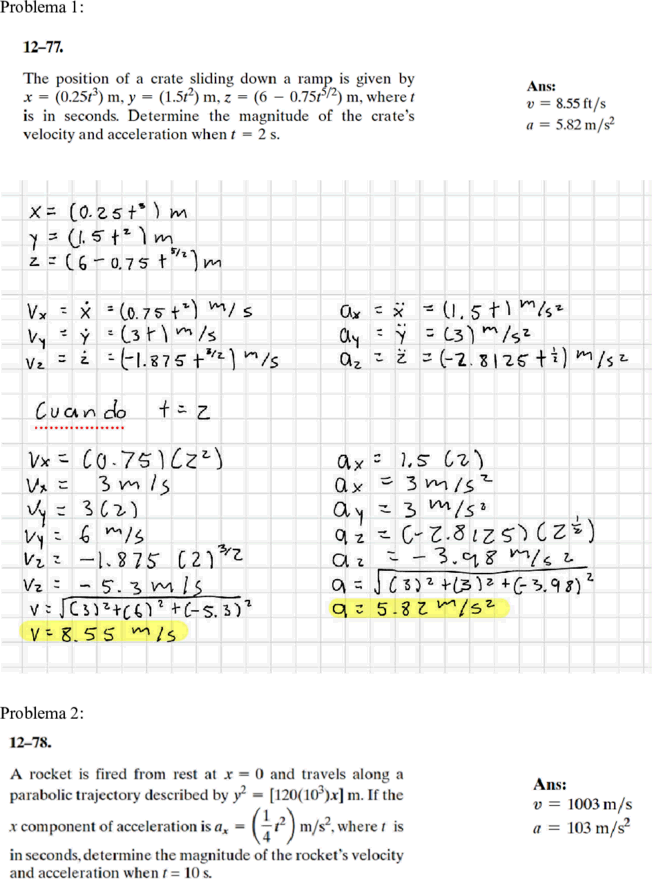 Problema 1:
12–77.
The position of a crate sliding down a ramp is given by
x = (0.25t³) m, y = (1.5t²) m, z = (6 − 0.75t^5/2) m, where t
is in seconds. Determine the magnitude of the crate's
velocity and acceleration when t = 2 s.
Ans:
v = 8.55 ft/s
a = 5.82 m/s²
x = (0.25t³) m
y = (1.5t²) m
z = (6 − 0.75t^5/2) m
Vx = ẋ = (0.75t²) m/s
Vy = ẏ = (3t) m/s
Vz = ż = (−1.875t^3/2) m/s
ax = ẍ = (1.5t) m/s²
ay = ÿ = (3) m/s²
az = z̈ = (−2.8125t^½) m/s²
Cuando t = 2
Vx = (0.75)(2²)
Vx = 3 m/s
Vy = 3(2)
Vy = 6 m/s
Vz = −1.875 (2)^3/2
Vz = −5.3 m/s
V = √(3)²+(6)²+(−5.3)²
V = 8.55 m/s
ax = 1.5 (2)
ax = 3 m/s²
ay = 3 m/s²
az = (−2.8125)(2^½)
az = −3.98 m/s²
a = √(3)²+(3)²+(−3.98)²
a = 5.82 m/s²
Problema 2:
12–78.
A rocket is fired from rest at x = 0 and travels along a
parabolic trajectory described by y² = [120(10³)x] m. If the
x component of acceleration is aₓ = (1/4 t²) m/s², where t is
in seconds, determine the magnitude of the rocket's velocity
and acceleration when t = 10 s.
Ans:
v = 1003 m/s
a = 103 m/s²